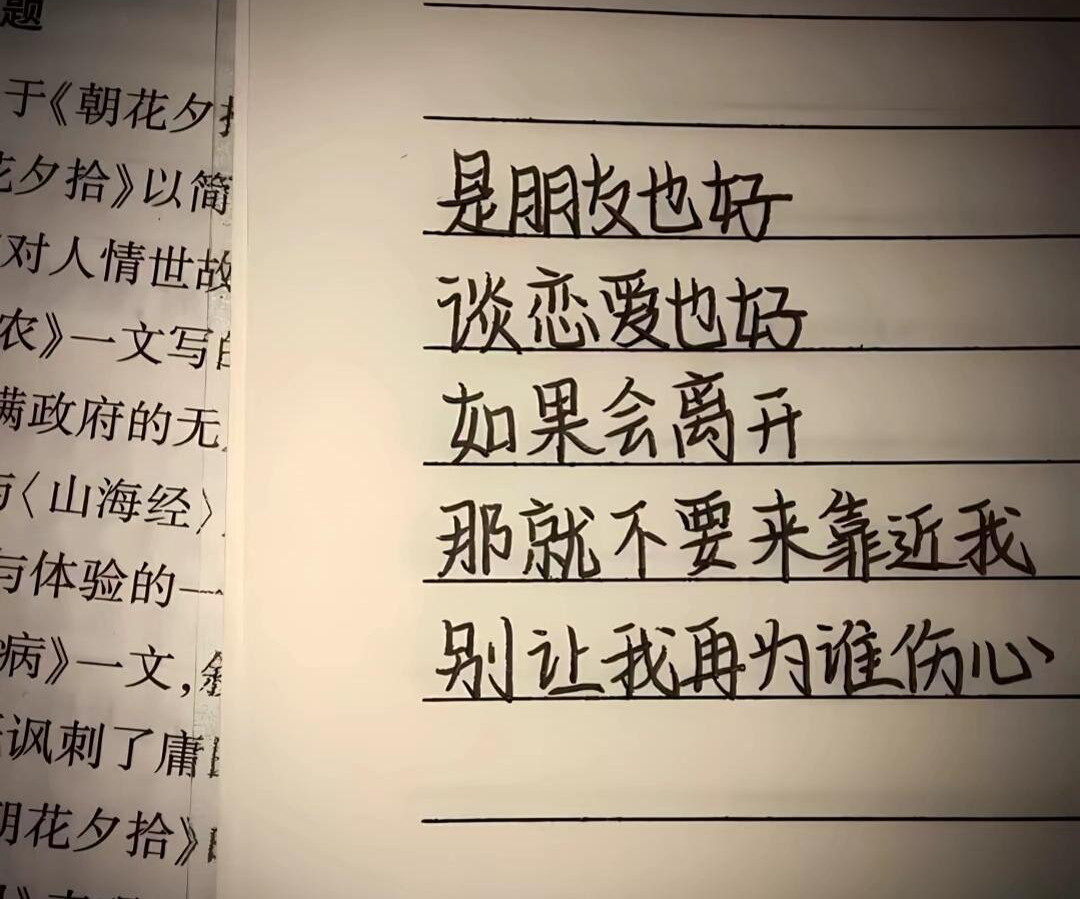 题
于《朝花夕
花夕拾》以简
对人情世故
农》一文写
满政府的无
与〈山海经〉
与体验的一
病》一文，
讽刺了庸
朝花夕拾》
是朋友也好
谈恋爱也好
如果会离开
那就不要来靠近我
别让我再为谁伤心